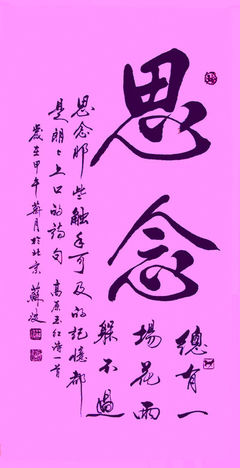 思念
總有一
場花雨
躲不過
思念那些觸手可及的記憶都
是朗々上口的詩句 高原玉红诗一首
歲在甲午月於北京 蘇